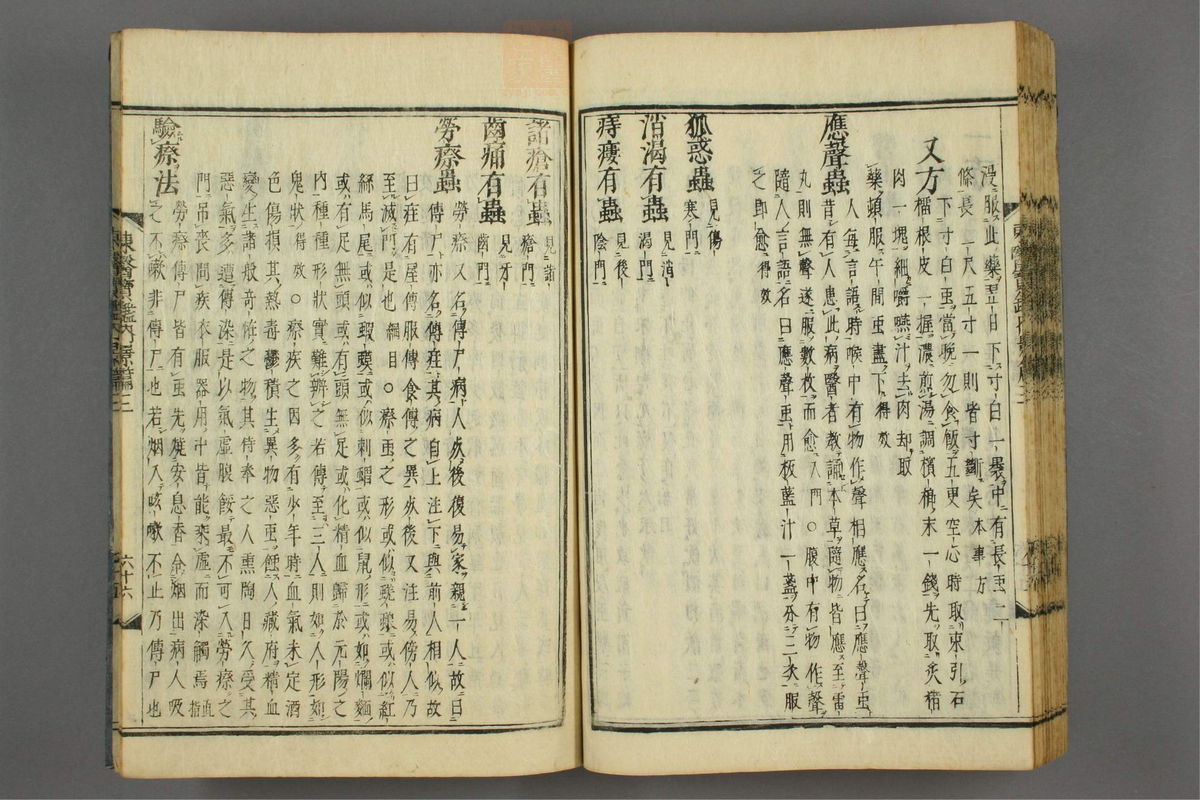 浸服此藥翌日下寸白一裹中有長虫二
條長一尺五寸一則皆寸斷矣本事方
又方 下寸白虫當晚勿食飯五更空心時取東引石
榴根皮一握濃煎湯調檳榔末一錢先取炙猪
肉一塊細嚼嚥汁去肉却取
藥頓服午間虫盡下得效
應聲蟲 人每言語時喉中有物作聲相應名曰應聲虫
昔有人患此病醫者教誦本草隨物皆應至雷
丸則無聲遂服數枚而愈入門○腹中有物作聲
隨人言語名曰應聲虫用板藍汁一盞分三服
之即愈得效
狐惑蟲 見傷寒門
消渴有蟲 見消渴門
痔瘻有蟲 見後陰門
諸瘡有蟲 見諸瘡門
齒痛有蟲 見牙齒門
勞瘵蟲 勞瘵又名傳尸病人死後復易家親一人故曰
傳尸亦名傳疰其病自上注下與前人相似故
曰疰有屋傳服傳食傳之異死後又注易傍人乃
至滅門是也綱目○瘵虫之形或似蜣蜋或似紅
絲馬尾或似蝦蟆或似刺蝟或似鼠形或如爛麵
或有足無頭或有頭無足或化精血歸於元陽之
內種種形狀實難辨之若傳至三人則如人形如
鬼狀得效○瘵疾之因多有少年時血氣未定酒
色傷損其熱毒鬱積生異物惡虫蝕人藏府精血
變生諸般奇恠之物其侍奉之人熏陶日久受其
惡氣多遭傳染是以氣虛腹餒最不可入勞瘵之
門吊喪問疾衣服器用中皆能乘虛而染觸焉直指
驗瘵法 勞瘵傳尸皆有虫先燒安息香令烟出病人吸
之不嗽非傳尸也若烟入咳嗽不止乃傳尸也
東醫寶鑑內景篇三
六十六